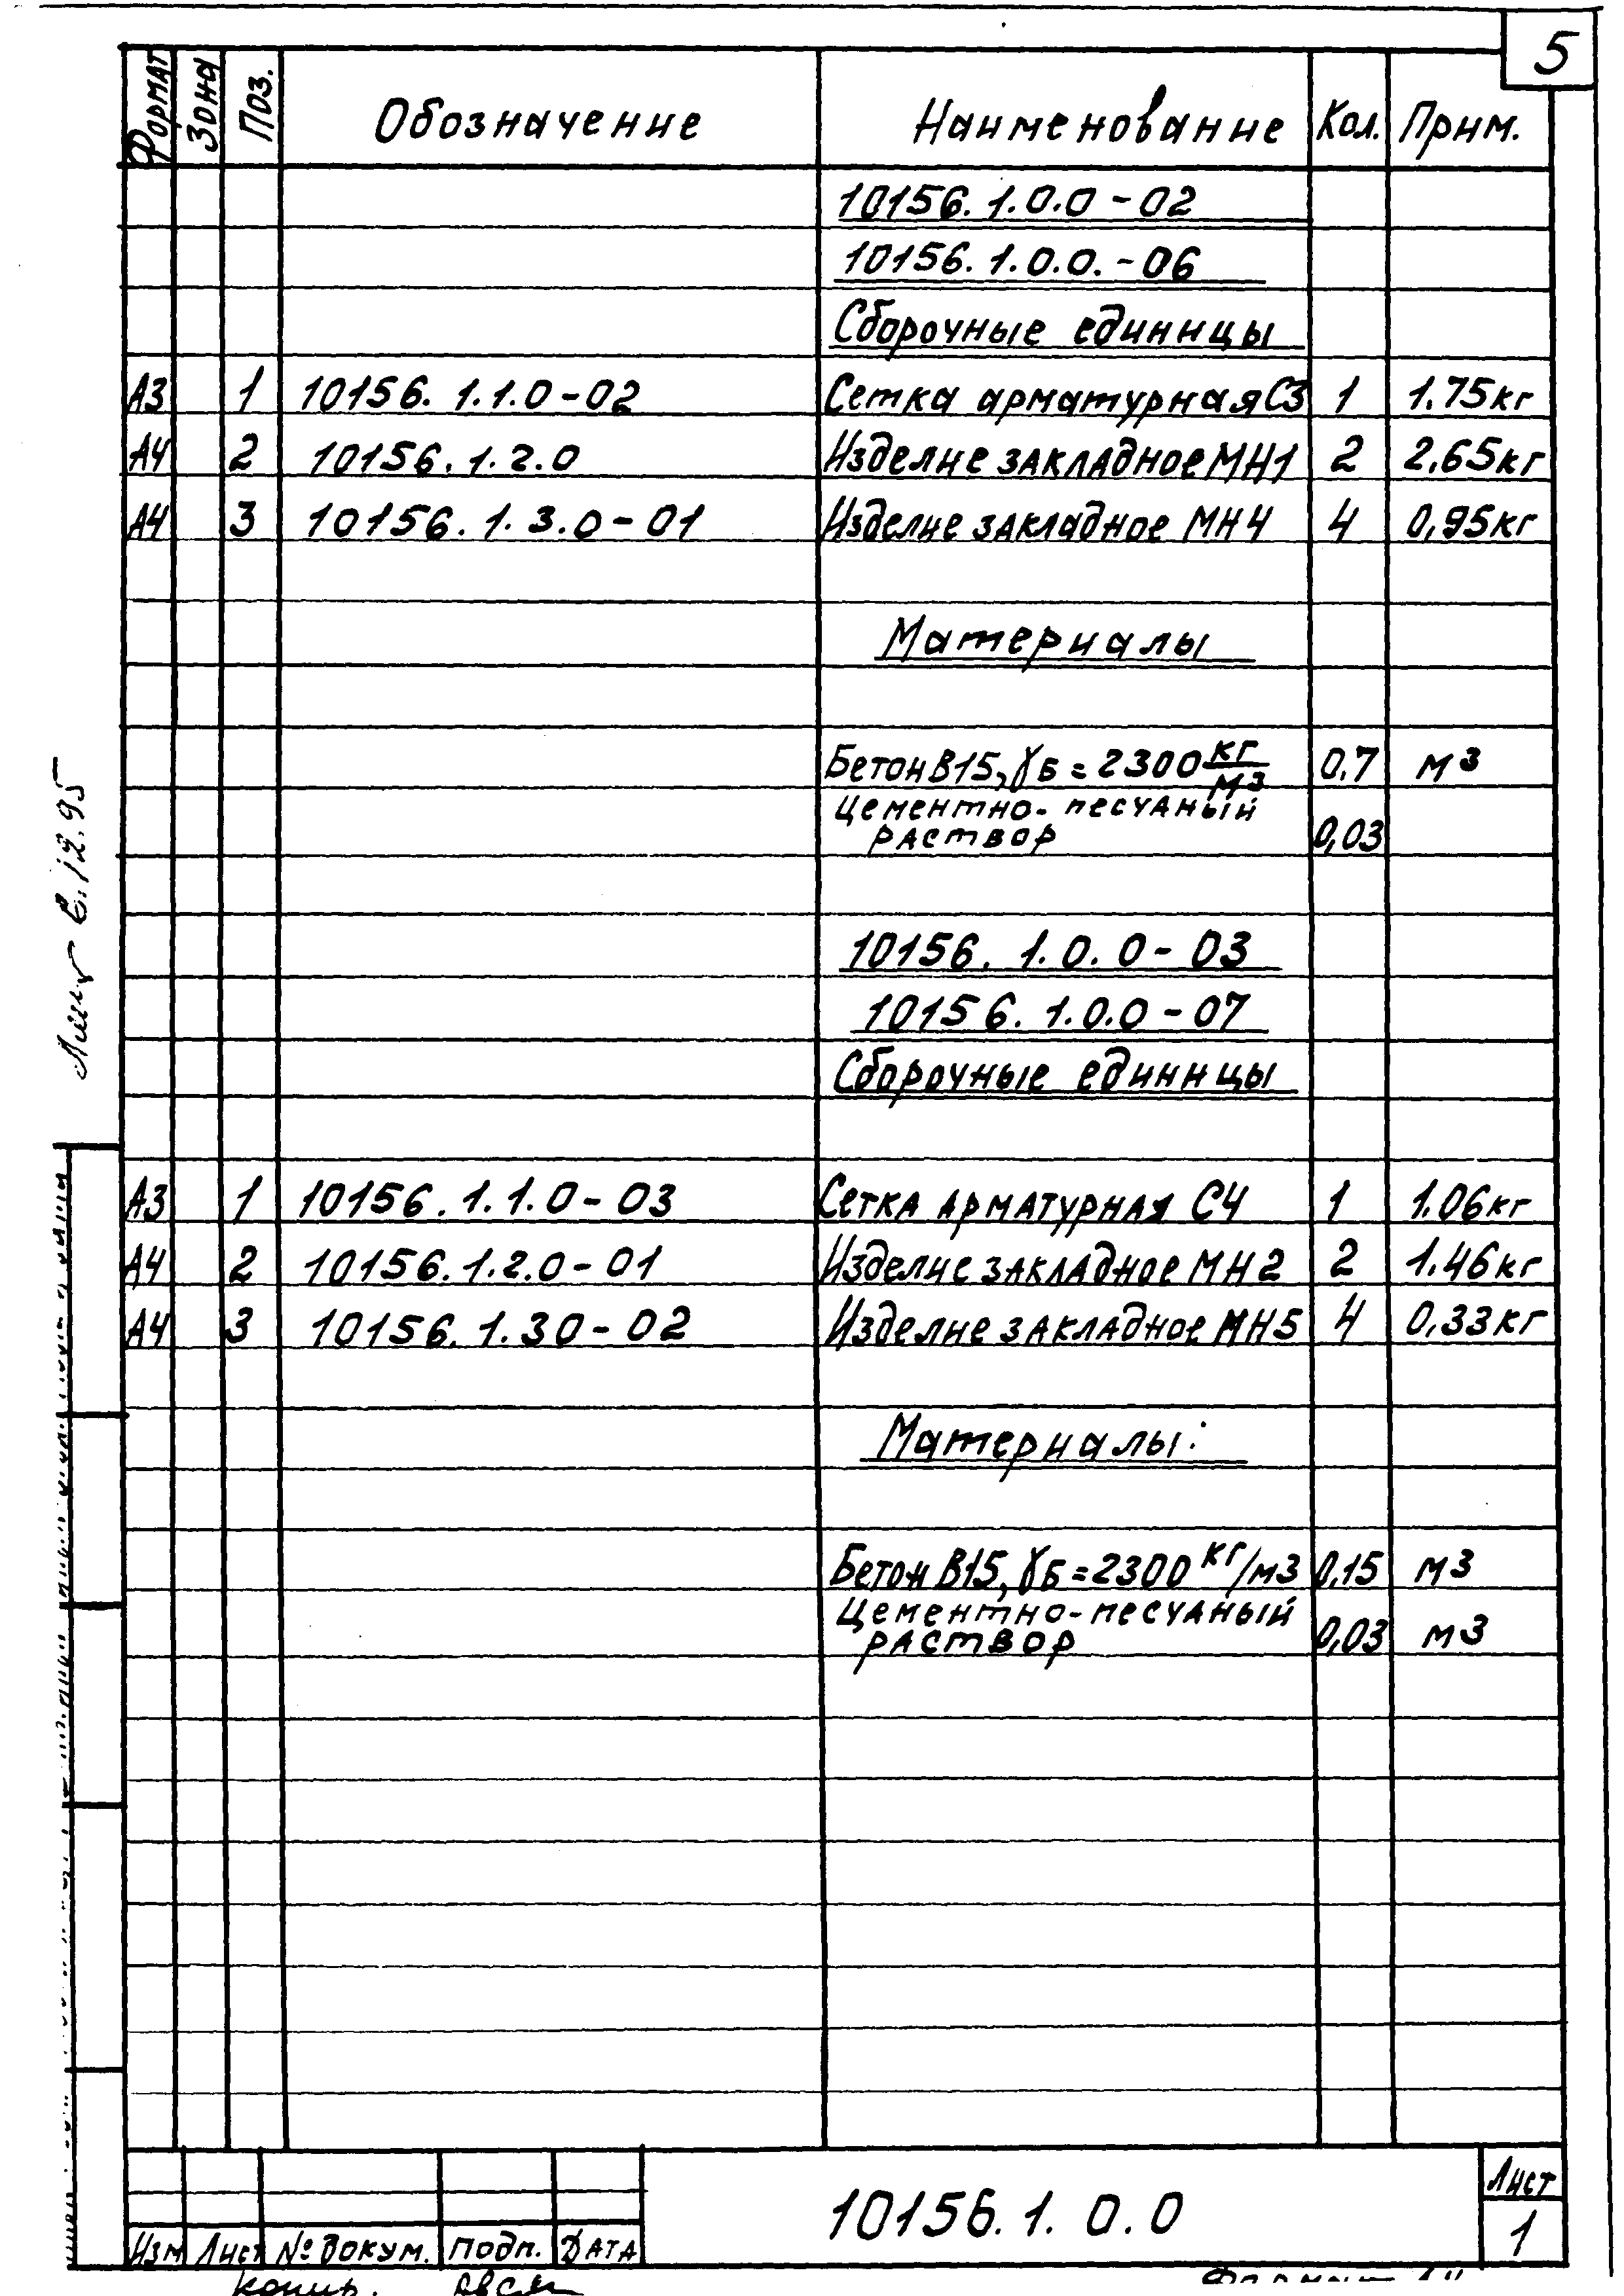 5
Формат Зона Поз. Обозначение Наименование Кол. Прим.
10156.1.0.0-02
10156.1.0.0.-06
Сборочные единицы
А3 1 10156.1.1.0-02 Сетка арматурная С3 1 1.75кг
А4 2 10156.1.2.0 Изделие закладное МН1 2 2,65кг
А4 3 10156.1.3.0-01 Изделие закладное МН4 4 0,95кг
Материалы
Бетон В15, γБ=2300 кг/м3 0,7 м3
Цементно-песчаный
раствор 0,03
10156.1.0.0-03
10156.1.0.0-07
Сборочные единицы
А3 1 10156.1.1.0-03 Сетка арматурная С4 1 1.06кг
А4 2 10156.1.2.0-01 Изделие закладное МН2 2 1.46кг
А4 3 10156.1.30-02 Изделие закладное МН5 4 0,33кг
Материалы:
Бетон В15, γБ=2300 кг/м3 0,15 м3
Цементно-песчаный
раствор 0,03 м3
12.95
10156.1.0.0
Лист
1
Изм Лист № докум. подп. Дата
копир.